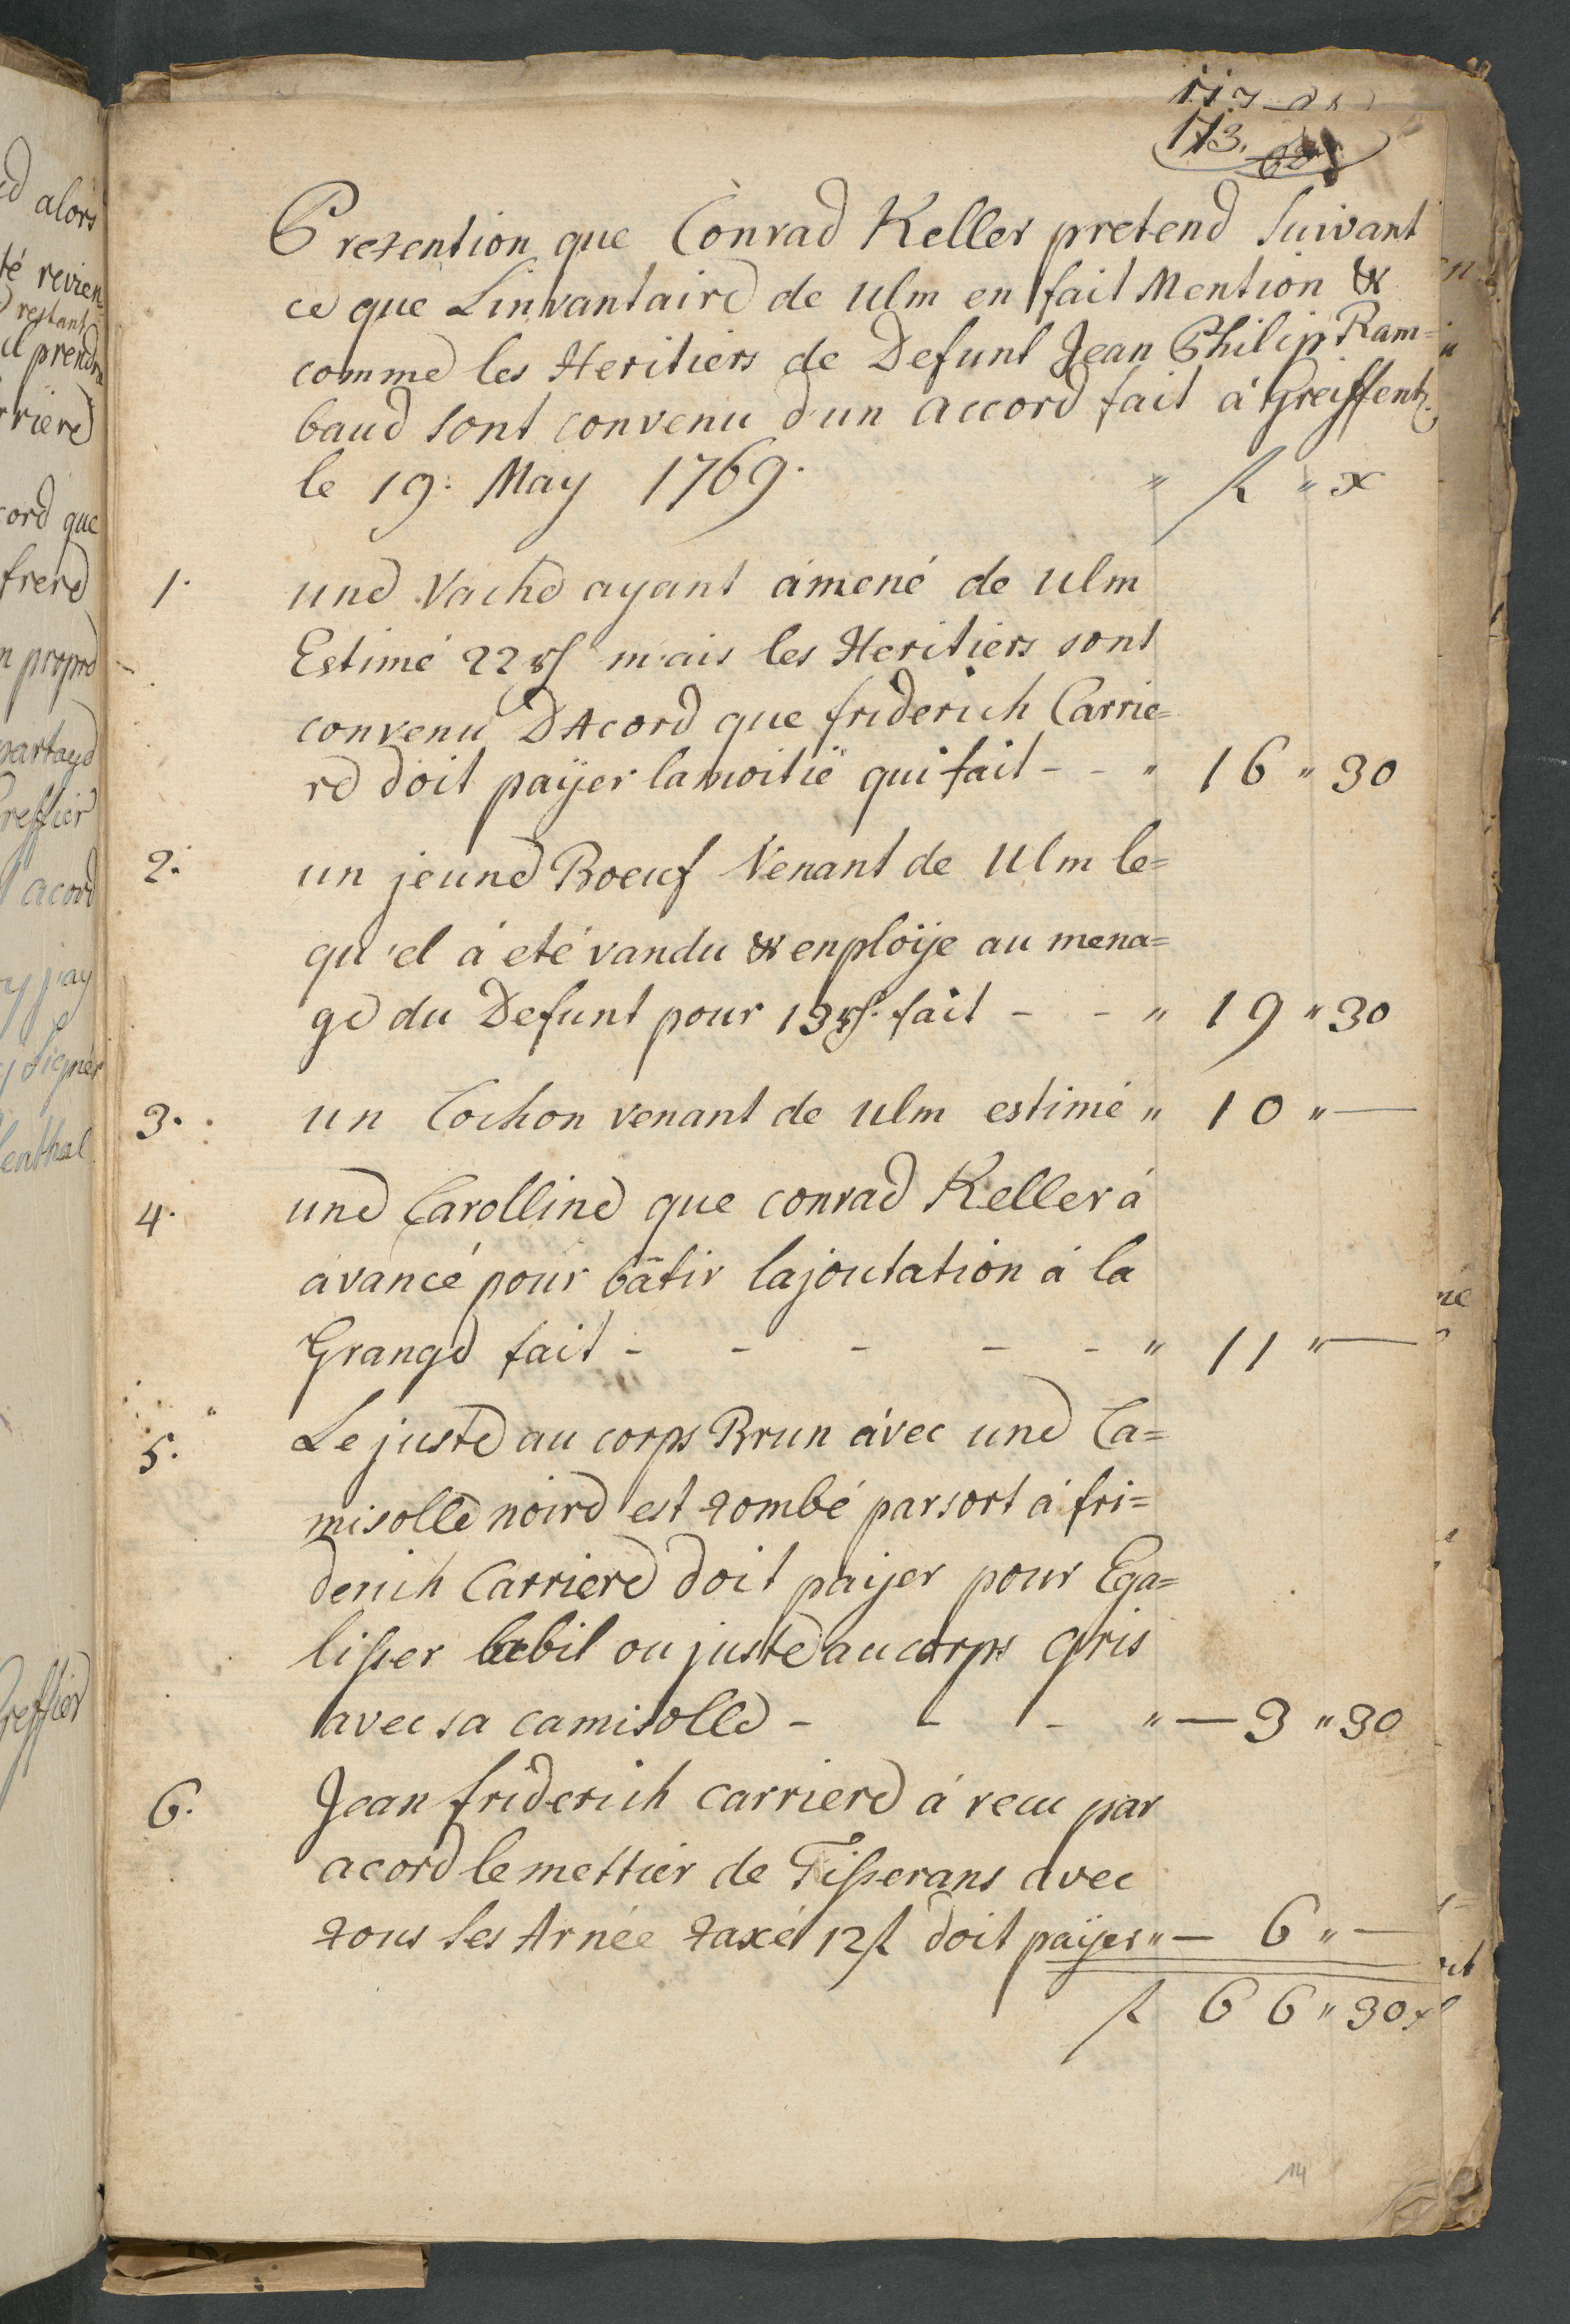 173.
Pretention que Conrad Keller pretend Suivant
ce que Linvantaire de Ulm en fait Mention &
comme les Heritiers de Defunt Jean Philip Ram=
baud sont convenu d'un accord fait á Greiffenth.
le 19: May 1769. " fl " x
1. une Vache ayant ámené de Ulm
Estimé 22 rf mais les Heritiers sont
convenu DAcord que friderich Carrie=
re doit paÿer lamoitié qui fait - - " 16 " 30
2. un jeune Boeuf Venant de Ulm le=
qu'el á eté vandu & enploÿe au mena=
ge du Defunt pour 13 rf. fait - - " 19 " 30
3. un Cochon venant de Ulm estimé " 10 " —
4. une Carolline que conrad Keller á
ávancé pour bâtir lajoutation á la
Grange fait - - - - - " 11 " —
5. Le juste au corps Brun ávec une Ca=
misolle noire est tombé parsort á fri=
derich Carriere doit paÿer pour Ega=
lisser labit ou juste au corps gris
avec sa camisolle - - - " — 3 " 30
6. Jean friderich carriere á recu par
acord le mettier de Tisserans avec
tous ses Arnée taxé 12 fl doit paÿer " — 6 " —
fl 66 " 30 x
14
alors
té revien=
restant
il prendra
rriere
cord que
frere
n propre
partage
Greffier
acord
y j'ay
signér
lenthal
Greffier